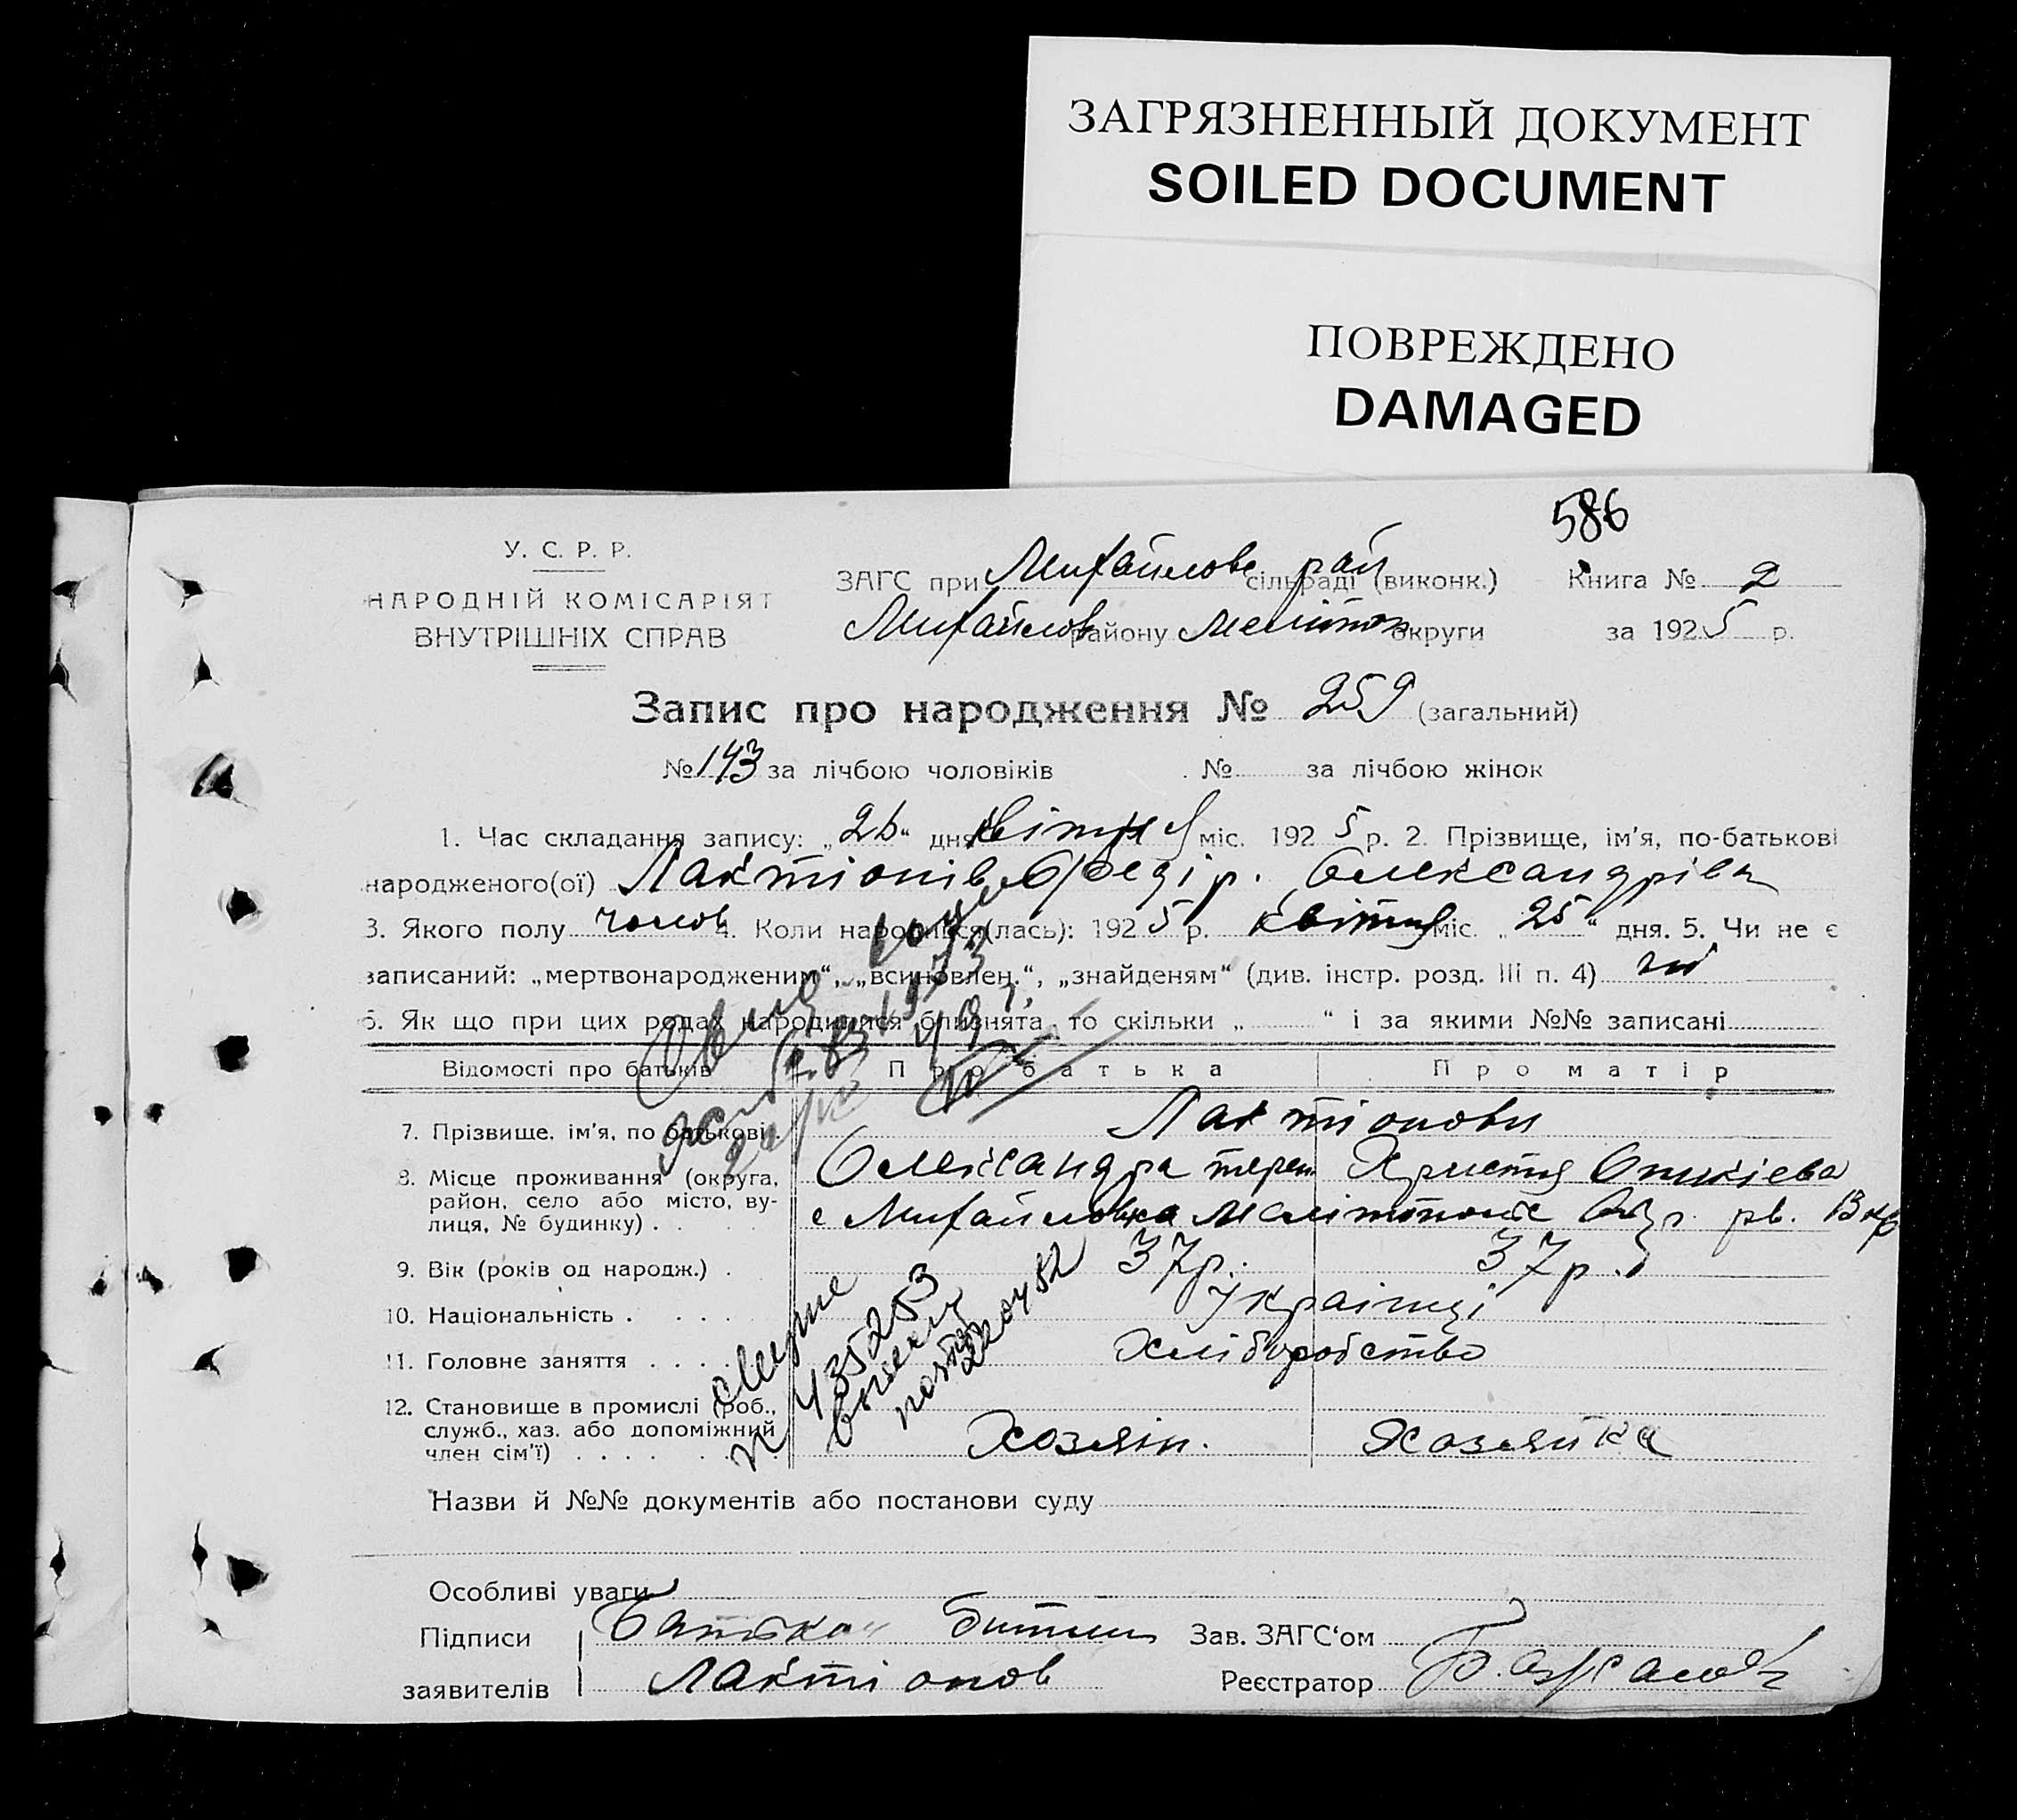 ЗАГРЯЗНЕННЫЙ ДОКУМЕНТ
SOILED DOCUMENT
ПОВРЕЖДЕНО
DAMAGED
586
У. С. Р. Р.
НАРОДНІЙ КОМІСАРІЯТ
ВНУТРІШНІХ СПРАВ
ЗАГС при Михайлове сільраді рай (виконк.) Книга № 2
Михайлов району Мелітоп округи за 1925 р.
Запис про народження № 259 (загальний)
№ 143 за лічбою чоловіків № за лічбою жінок
1. Час складання запису: „26“ дня квітня міс. 1925 р. 2. Прізвище, ім’я, по-батькові
народженого(ої) Лактіонів Федір. Олександрів
3. Якого полу чолов 4. Коли народився(лась): 1925 р. квітня міс. „25“ дня. 5. Чи не є
записаний: „мертвонародженим“, „всиновлен.“, „знайденям“ (див. інстр. розд. III п. 4) ні
6. Як що при цих родах народилися близнята, то скільки „ “ і за якими №№ записані
Відомості про батьків Про батька Про матір
7. Прізвище, ім’я, по батькові Лактіонови
Олександра терен Христя
8. Місце проживання (округа,
район, село або місто, ву-
лиця, № будинку) . . с Михайловка
9. Вік (років од народж.) . 37р. 37р.
10. Національність . . . . Українці
11. Головне заняття . . . . Хліборобство
12. Становище в промислі (роб.,
служб., хаз. або допоміжний
член сім’ї) . . . . Хозяін. Хозяйка
435253
Назви й №№ документів або постанови суду
Особливі уваги
Підписи Батько Зав. ЗАГС‘ом
заявителів Лактіонов Реєстратор